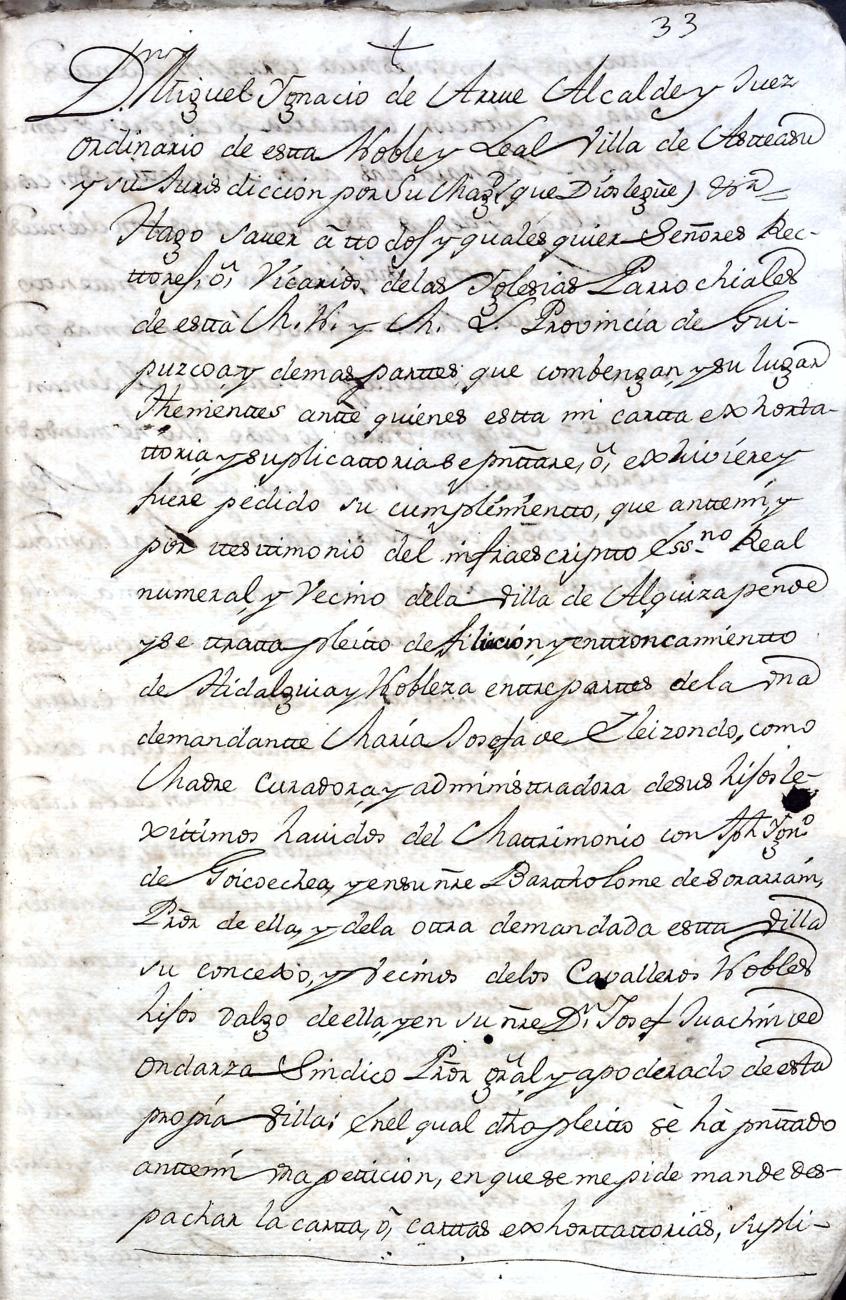 33
Dn Miguel Ygnacio de Arrue Alcalde y Juez
ordinario de estta Noble y Leal Villa de Astteasu
y su Jurisdicción por Su Magd (que Dios legue)
Hago saver á ttodos y qualesquier Señores Rec-
ttores, ó Vicarios, delas Yglesias Parrochiales
de estta M. N. y M. L. Provincia de Gui-
puzcoa, y demas parttes, que combengan, y su lugar
Thenienttes antte quienes estta mi cartta exhortta-
ttoria, y suplicattoria se pnttare, ó exhiviere y
fuere pedido su cumplimientto, que anttemi, y
por ttesttimonio del infraescriptto Essno Real
numeral, y Vecino dela Villa de Alquiza pende
y se ttratta pleitto de filiación, y enttroncamientto
de Hidalguia y Nobleza enttre parttes dela una
demandantte Maria Josefa de Eleizondo, como
Madre Curadora, y administtradora desus hijos le-
xittimos havidos del Mattrimonio con Jph Ygno
de Goicoechea, y ensu ñre Bartholome de Sorarrain,
Pror de ella, y dela ottra demandada estta Villa
su concexo, y Vecinos delos Cavalleros Nobles
hijos dalgo de ella, y en su ñre Dn Josef Juachin de
Ondarza Sindico Pror gral y apoderado de esta
propia Villa; Enel qual dho pleitto se há pnttado
anttemi una petición, en que se me pide mande des-
pachar la cartta, ó carttas exhorttattorias, supli-